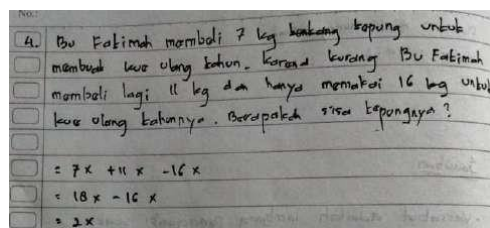 No.:
4. Bu Fatimah membeli 7 kg tepung untuk
membuat kue ulang tahun. Karena kurang Bu Fatimah
membeli lagi 11 kg dan hanya memakai 16 kg untuk
kue ulang tahunnya. Berapakah sisa tepungnya?
= 7x + 11x - 16x
= 18x - 16x
= 2x